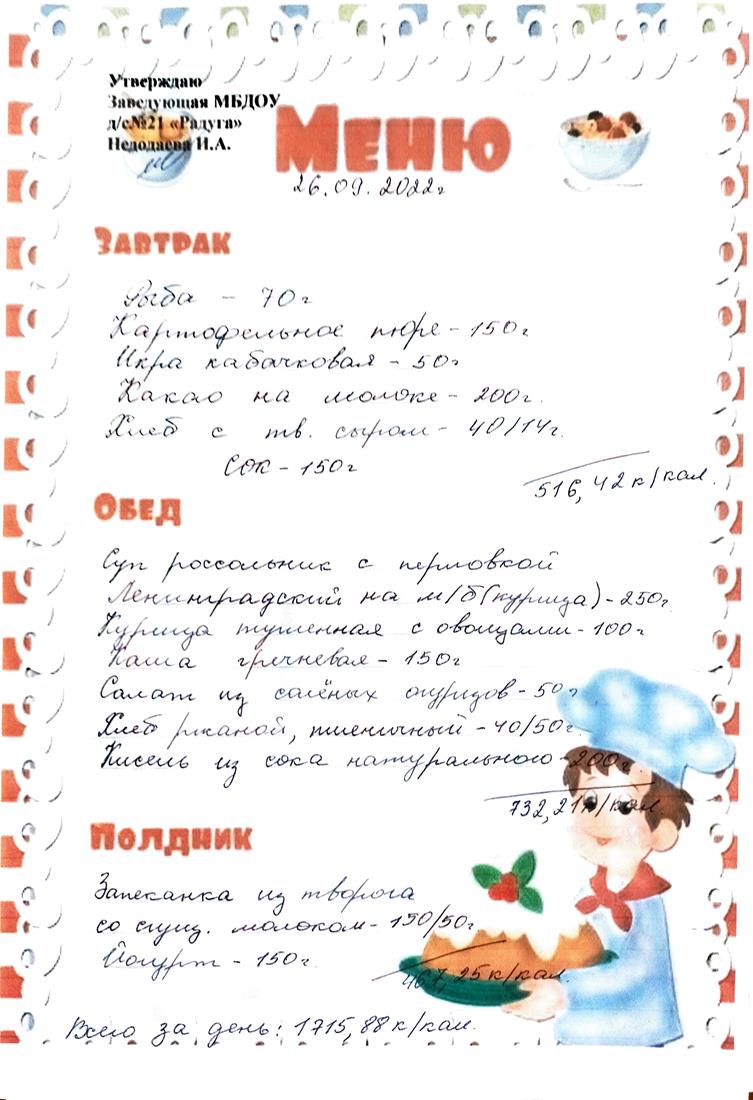 Утверждаю
Заведующая МБДОУ
д/с№21 «Радуга»
Недодаева И.А.
Меню
26.09.2022г
Завтрак
Рыба - 70г
Картофельное пюре - 150г
Икра кабачковая - 50г
Какао на молоке - 200г.
Хлеб с тв. сыром - 40/14г.
Сок - 150г
516,42 к/кал.
Обед
Суп россольник с перловкой
Ленинградский на м/б (курица) - 250г.
Курица тушенная с овощами - 100г
Каша гречневая - 150г
Салат из солёных огурцов - 50г
Хлеб ржаной, пшеничный - 40/50г.
Кисель из сока натурального - 200г.
732,21к/кал.
Полдник
Запеканка из творога
со сгущ. молоком - 150/50г
Йогурт - 150г.
467,25к/кал.
Всего за день: 1715,88 к/кал.